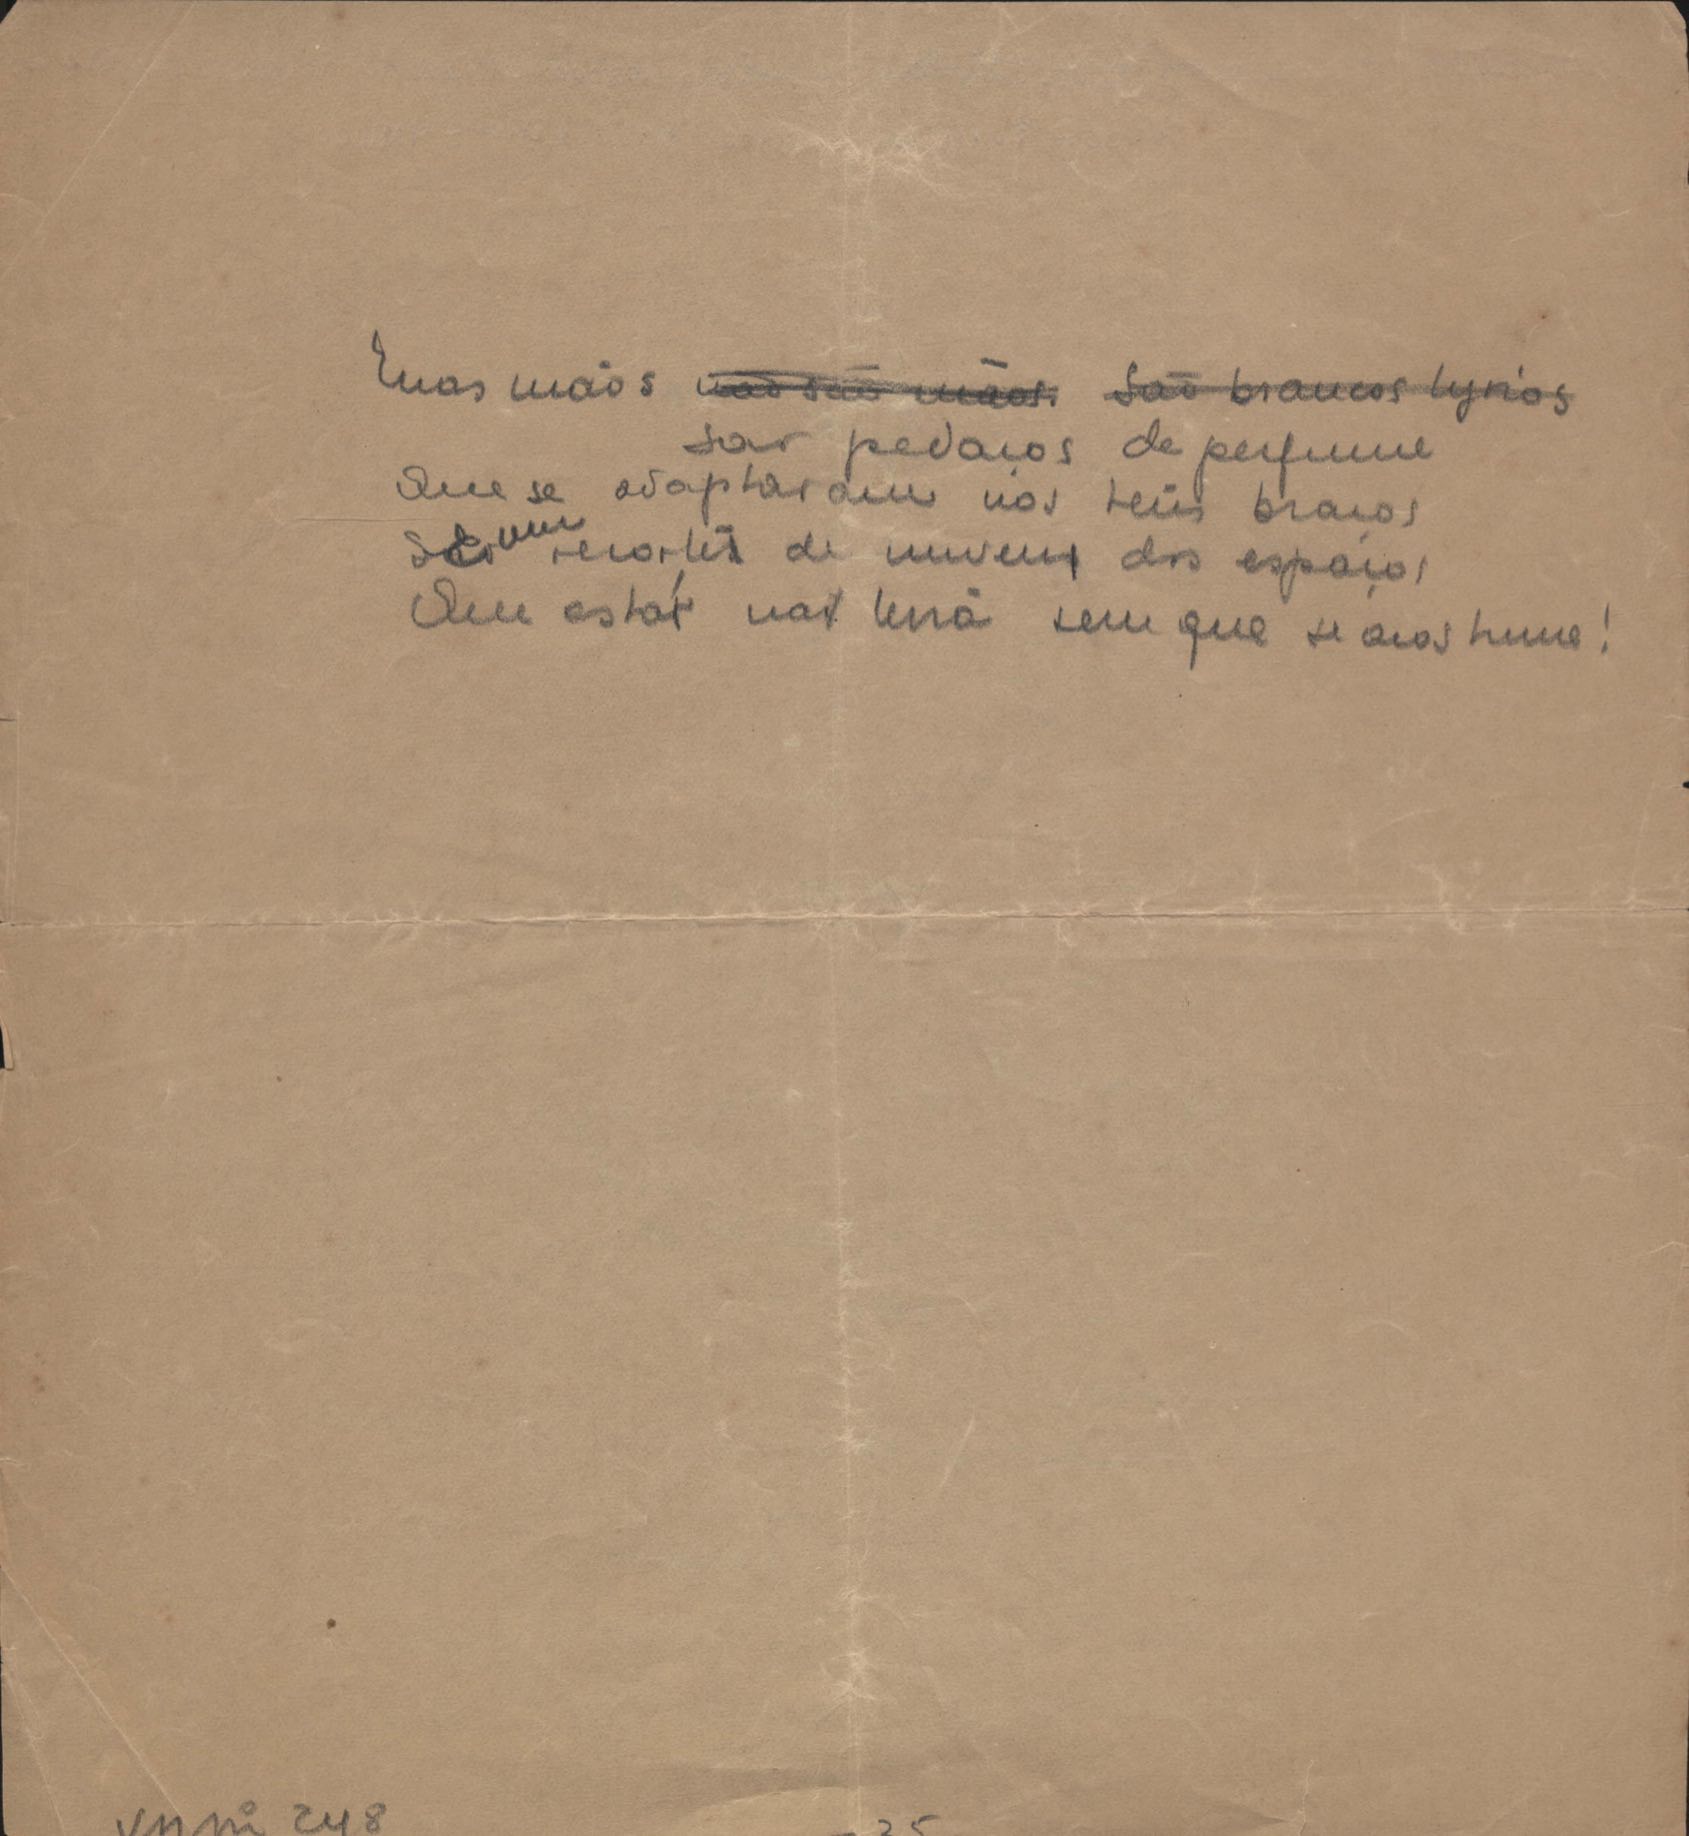 Tuas mãos não são mãos. São brancos lyrios
são pedaços de perfume
Que se adaptaram nos teus braços
São um recortes de nuvens dos espaços
Que está na terra sem que se acostume!
248
35